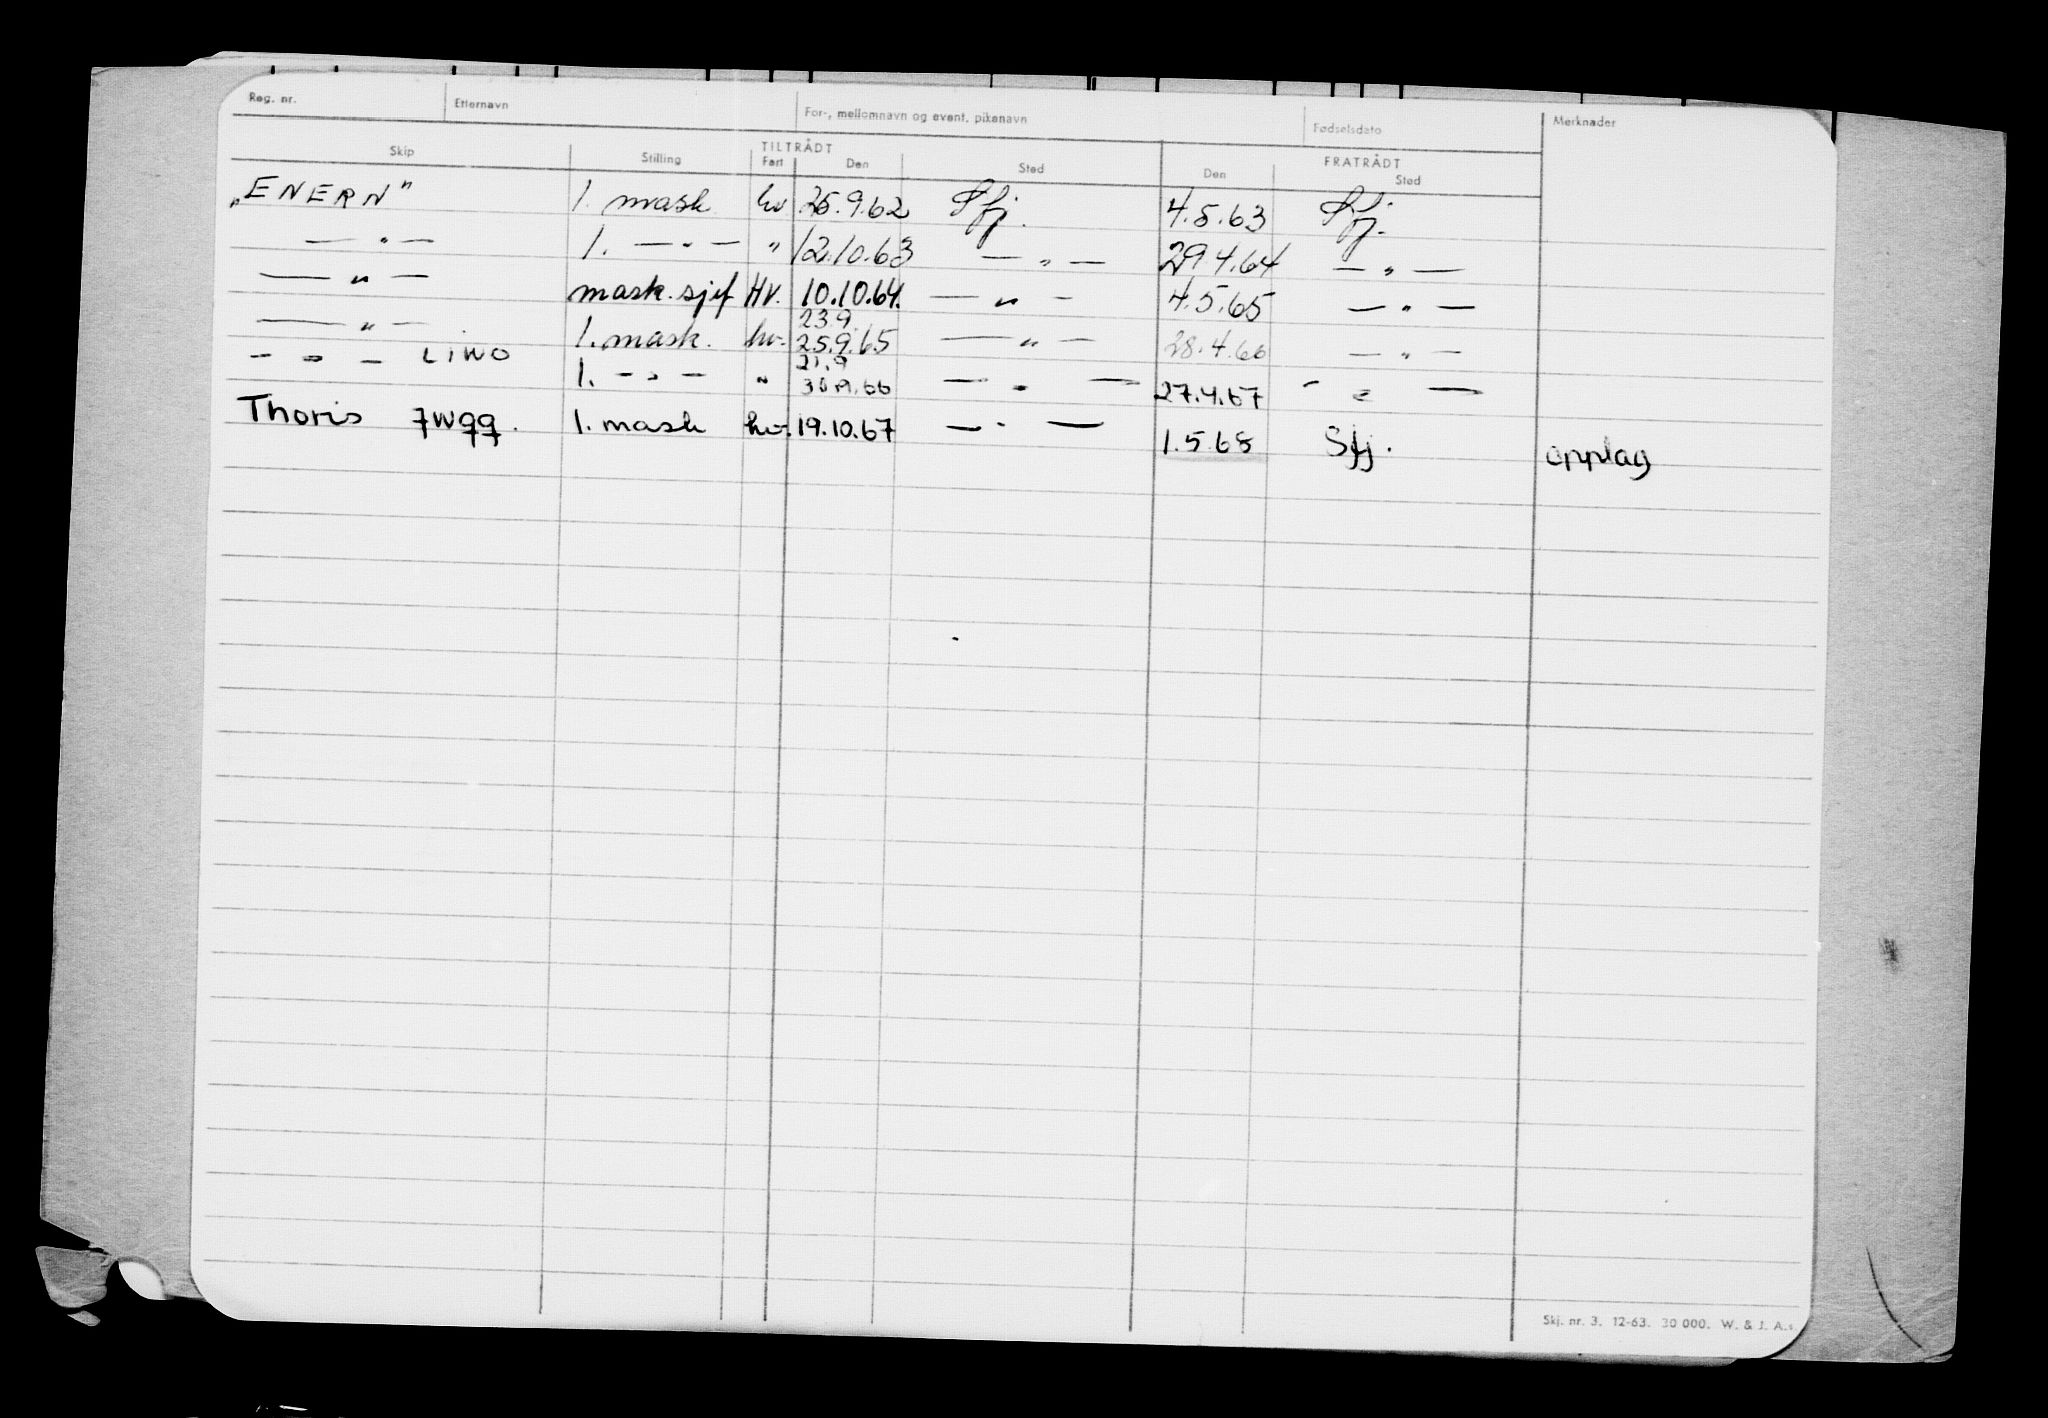 Reg. nr. Etternavn For-, mellomnavn og event. pikenavn Fødselsdato Merknader
TILTRÅDT FRATRÅDT
Skip Stilling Fart Den Sted Den Sted
„ENERN" 1. mask hv 25.9.62 Sfj. 4.5.63 Sfj.
— " — 1. — " — " 12.10.63 — " — 29.4.64 — " —
— " — mask.sjef Hv. 10.10.64. — " — 4.5.65 — " —
23.9.
— " — 1. mask. hv. 25.9.65 — " — 28.4.66 — " —
21.9
— " — LIWO 1. — " — " 30.9.66 — " — 27.4.67 — " —
Thoris 7wqq. 1. mask hv. 19.10.67 — " — 1.5.68 Sfj. opplag
Skj. nr. 3. 12-63. 30 000. W. & J. A.s